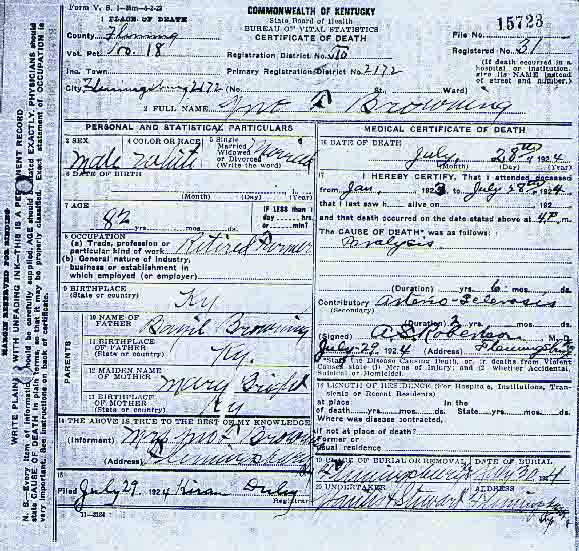 Form V. S. 1
COMMONWEALTH OF KENTUCKY
State Board of Health
BUREAU OF VITAL STATISTICS
CERTIFICATE OF DEATH
1 PLACE OF DEATH
File No. 15723
County Fleming
Registered No. 31
Vot. Pct. No. 18 Registration District No.
(If death occurred in a hospital or institution, give its NAME instead of street and number.)
Inc. Town Primary Registration District No. 2172
City Flemingsburg 2172 (No. St. Ward)
2 FULL NAME Jno Browning
PERSONAL AND STATISTICAL PARTICULARS
3 SEX Male
4 COLOR OR RACE White
5 Single Married Widowed or Divorced (Write the word) Married
6 DATE OF BIRTH
(Month) (Day) (Year)
7 AGE 82 yrs. mos. ds.
IF LESS than 1 day, hrs. or min?
8 OCCUPATION
(a) Trade, profession or particular kind of work Retired Farmer
(b) General nature of industry, business or establishment in which employed (or employer)
9 BIRTHPLACE (State or country) Ky
PARENTS
10 NAME OF FATHER David Browning
11 BIRTHPLACE OF FATHER (State or country) Ky.
12 MAIDEN NAME OF MOTHER Mary
13 BIRTHPLACE OF MOTHER (State or country) Ky
14 THE ABOVE IS TRUE TO THE BEST OF MY KNOWLEDGE
(Informant) Mrs Jno Browning
(Address) Flemingsburg
15
Filed July 29 1924 Hiram Duley Registrar
11-3184
MEDICAL CERTIFICATE OF DEATH
16 DATE OF DEATH
July 28th 1924
(Month) (Day) (Year)
17 I HEREBY CERTIFY, That I attended deceased
from Jan, 1923 to July 28th 1924
that I last saw h alive on 192
and that death occurred on the date stated above at 4P.m.
The CAUSE OF DEATH* was as follows:
Paralysis
(Duration) yrs. 6 mos. ds.
Contributory (Secondary) Arterio-Sclerosis
(Duration) 2 yrs. mos. ds.
(Signed) A.S. Robertson M.D.
July 29 1924 (Address) Flemingsburg
*State the Disease Causing Death, or in deaths from Violent Causes state (1) Means of Injury; and (2) whether Accidental, Suicidal or Homicidal.
18 LENGTH OF RESIDENCE (For Hospitals, Institutions, Transients or Recent Residents)
At place of death yrs. mos. ds. In the State yrs. mos. ds.
Where was disease contracted, if not at place of death?
Former or usual residence
19 PLACE OF BURIAL OR REMOVAL DATE OF BURIAL
Flemingsburg 1924
20 UNDERTAKER Stewart Flemingsburg Ky
MARGIN RESERVED FOR BINDING
WRITE PLAINLY, WITH UNFADING INK—THIS IS A PERMANENT RECORD
N. B.—Every item of information should be carefully supplied. AGE should be stated EXACTLY. PHYSICIANS should state CAUSE OF DEATH in plain terms, so that it may be properly classified. Exact statement of OCCUPATION is very important. See instructions on back of certificate.